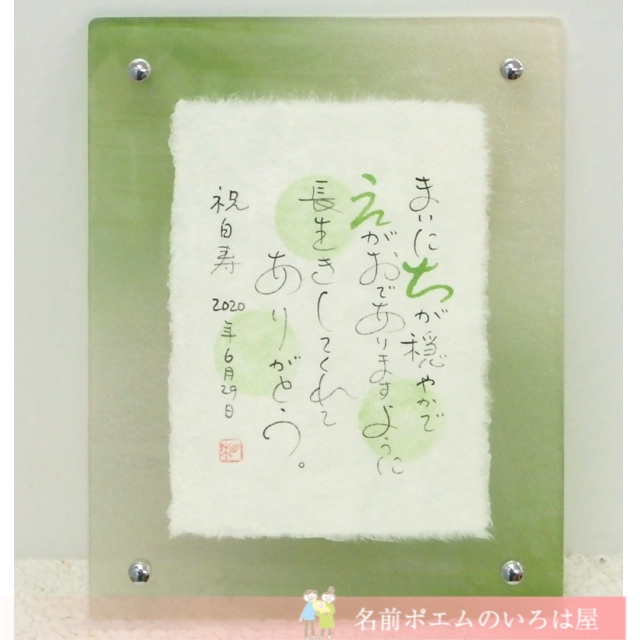 まいにちが穏やかで
えがおでありますように
長生きしてくれて
ありがとう。
祝白寿 2020年6月29日
名前ポエムのいろは屋